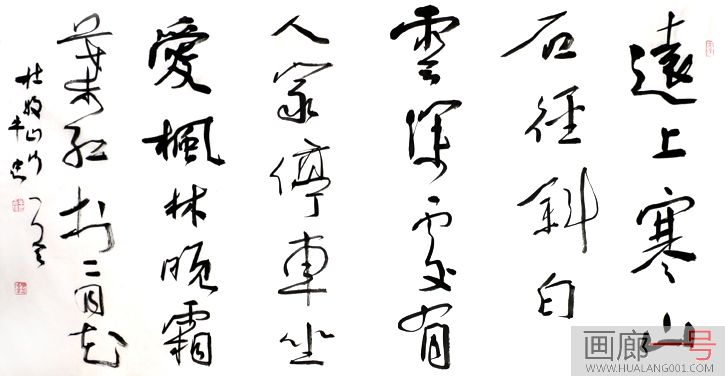 遠上寒山
石徑斜白
雲深處有
人家停車坐
愛楓林晚霜
葉紅於二月花
杜牧山行一首
画廊一号
WWW.HUALANG001.COM